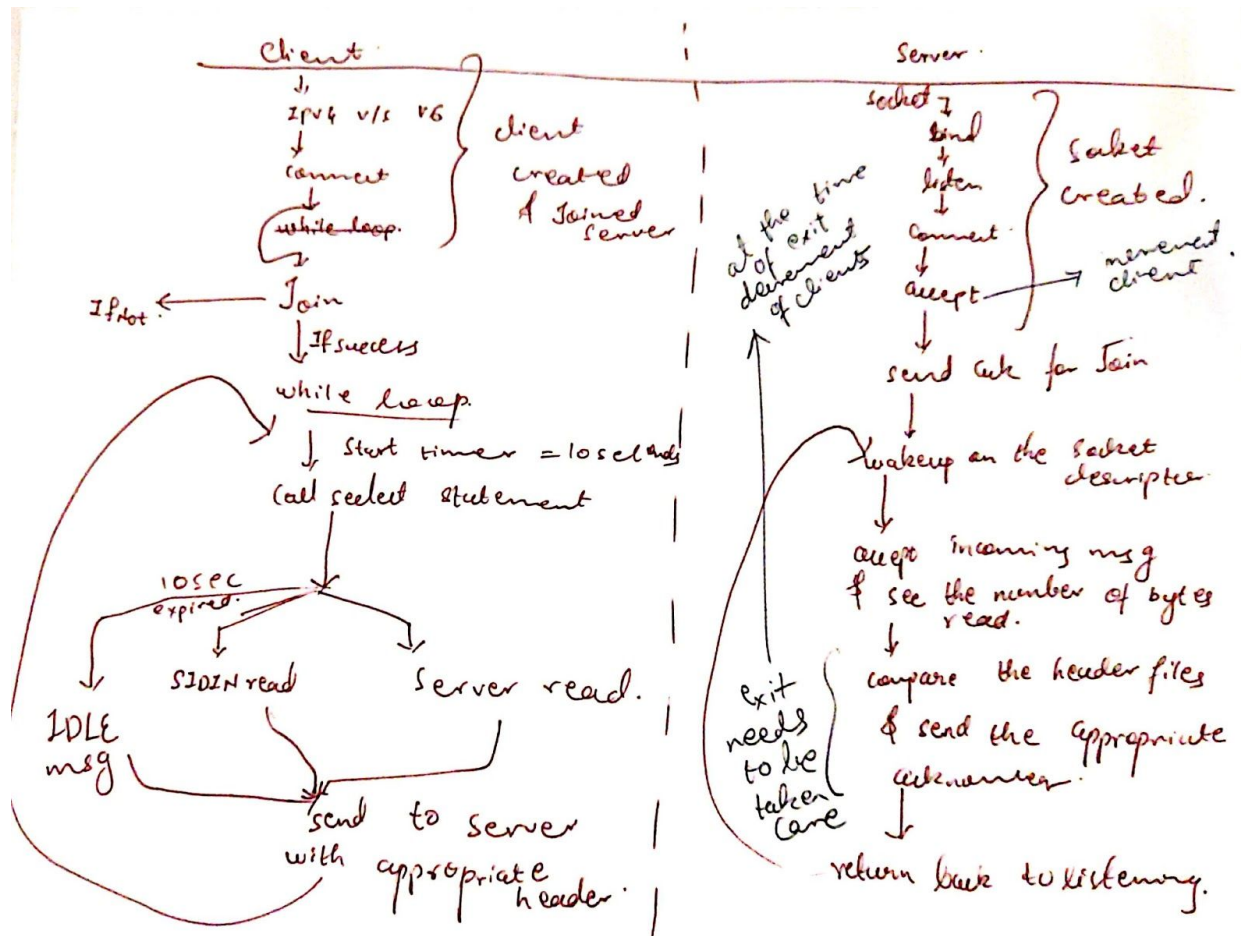 Client
IPv4 v/s v6
connect
while loop.
client
created
& Joined
server
If not.
Join
If success
while loop.
Start timer = 10 seconds
Call select statement
10 sec
expired.
STDIN read
Server read.
IDLE
msg
send to server
with appropriate
header.
Server.
socket
bind
listen
Connect
accept
Socket
created.
client
at the time
of exit
decrement
of clients
send ack for Join
wakeup on the socket
descriptor.
accept incoming msg
& see the number of bytes
read.
exit
needs
to be
taken
care
compare the header files
& send the appropriate
return back to listening.